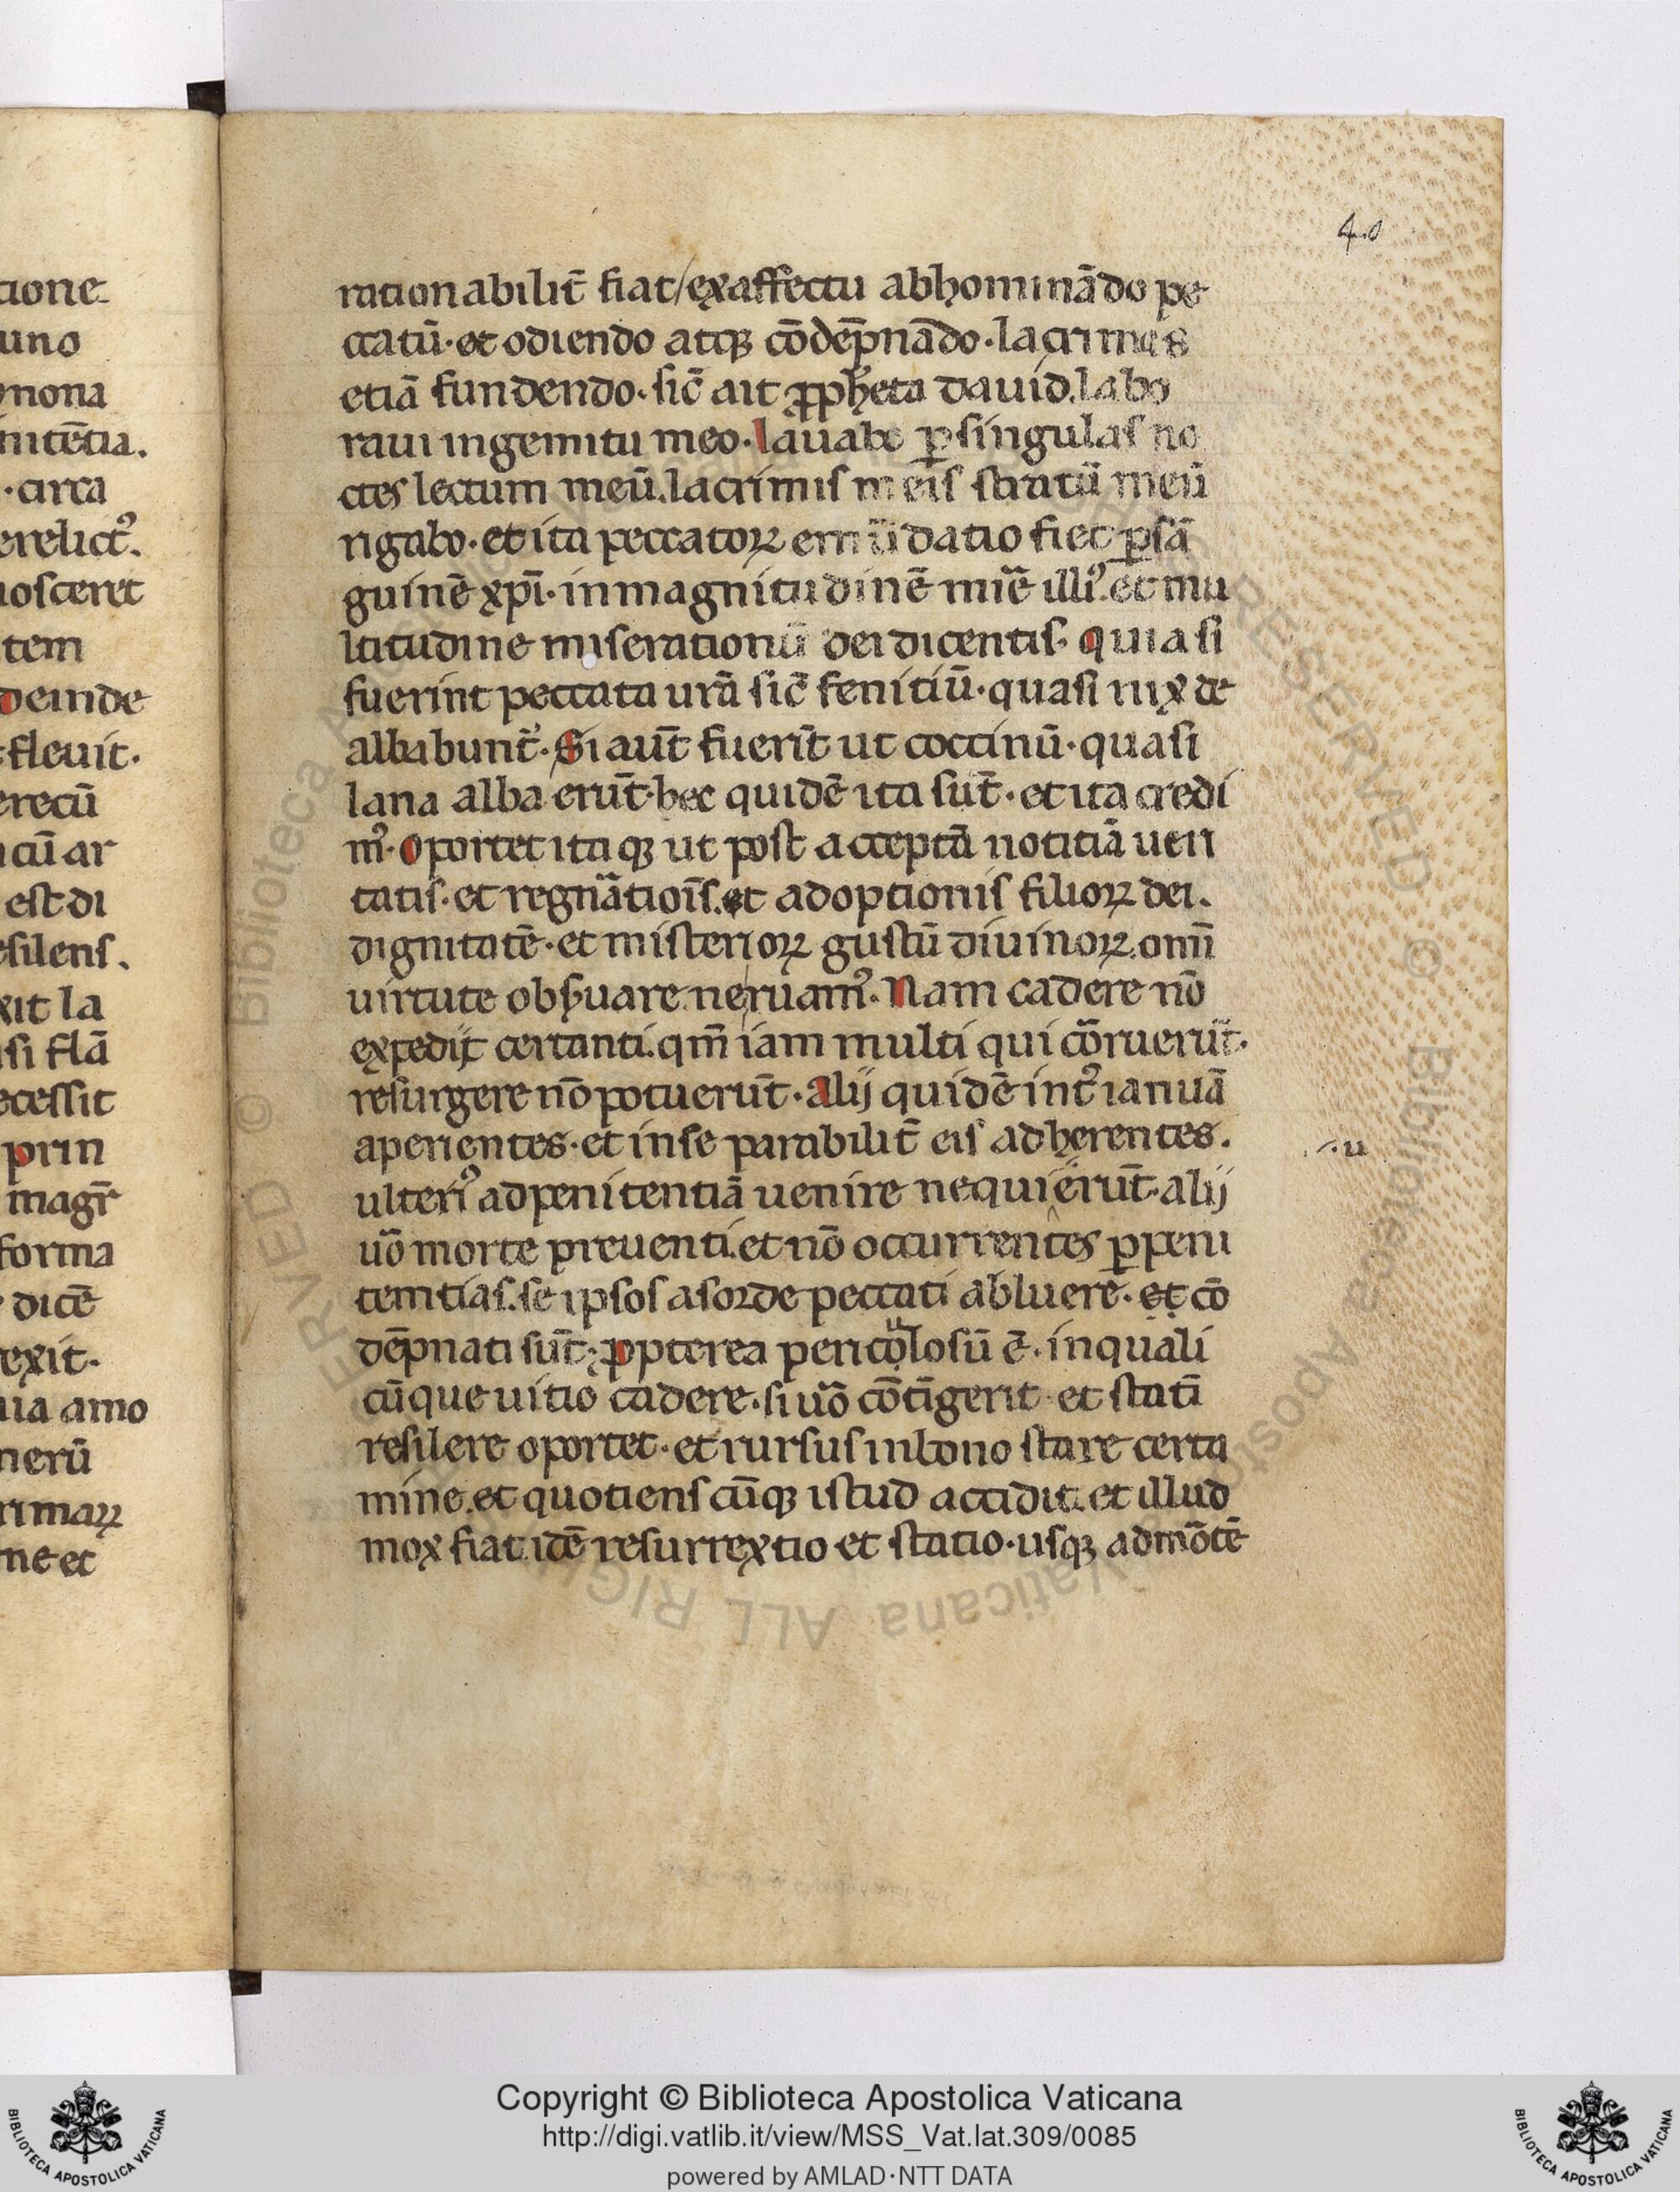 40
rationabilit̄ fiat/exaffectu abhominādo pe
ccatū·et odiendo atqꝫ cōdēpnādo·lacrimas
etiā fundendo·sic̄ ait ꝓpheta dauid.labo
raui ingemitu meo·lauabo ꝑsingulas no
ctes lectum meū.lacrimis meis stratū meū
rigabo·et ita peccatoꝝ emūdatio fiet ꝑsā
guinē xp̄i·inmagnitudinē mīe illiꝰ.et mu
ltitudine miserationū dei dicentis·quia si
fuerint peccata urā sic̄ fenitiū·quasi nix de
albabunt̄·Si aut̄ fuerīt ut coccinū·quasi
lana alba erūt·hec quidē ita sūt·et ita credi
mꝰ·oportet itaqꝫ ut post acceptā notitiā ueri
tatis·et regn̄ationis̄.et adoptionis filioꝝ dei.
dignitatē·et misterioꝝ gustū diuinoꝝ.omī
uirtute obs̄uare neruamꝰ·Nam cadere nō
expedijt certanti.qm̄ iam multi qui cōrruerūt·
resurgere nō potuerūt·alij quidē int̄ ianuā
aperientes·et inse parabilit̄ eis adherentes.
ulteriꝰ adpenitentiā uenire nequierūt·alij
uō morte preuenti.et nō occurrentes ꝑpeni
temtias.se ipsos asorde peccati abluere·et cō
dēpnati sūt·ꝓpterea pericolosū ē·inquali
u
cūque uitio cadere·si uō cōtīgerit·et statī
resilere oportet·et rursus inbono stare certa
mine.et quotienscūqꝫ istud accidit.et illud
mox fiat.idē resurrextio et statio·usqꝫ admōtē
Copyright © Biblioteca Apostolica Vaticana
http://digi.vatlib.it/view/MSS_Vat.lat.309/0085
powered by AMLAD·NTT DATA